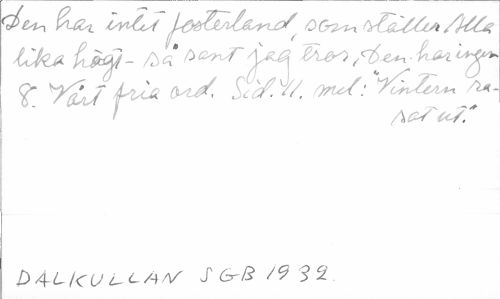 Den har intet fosterland, som ställer Alla
lika högt - så sant jag tror, Den har ingen
8. Vårt fria ord. Sid. 11. mel: "Vintern ra-
sat ut."
DALKULLAN SGB 1932.